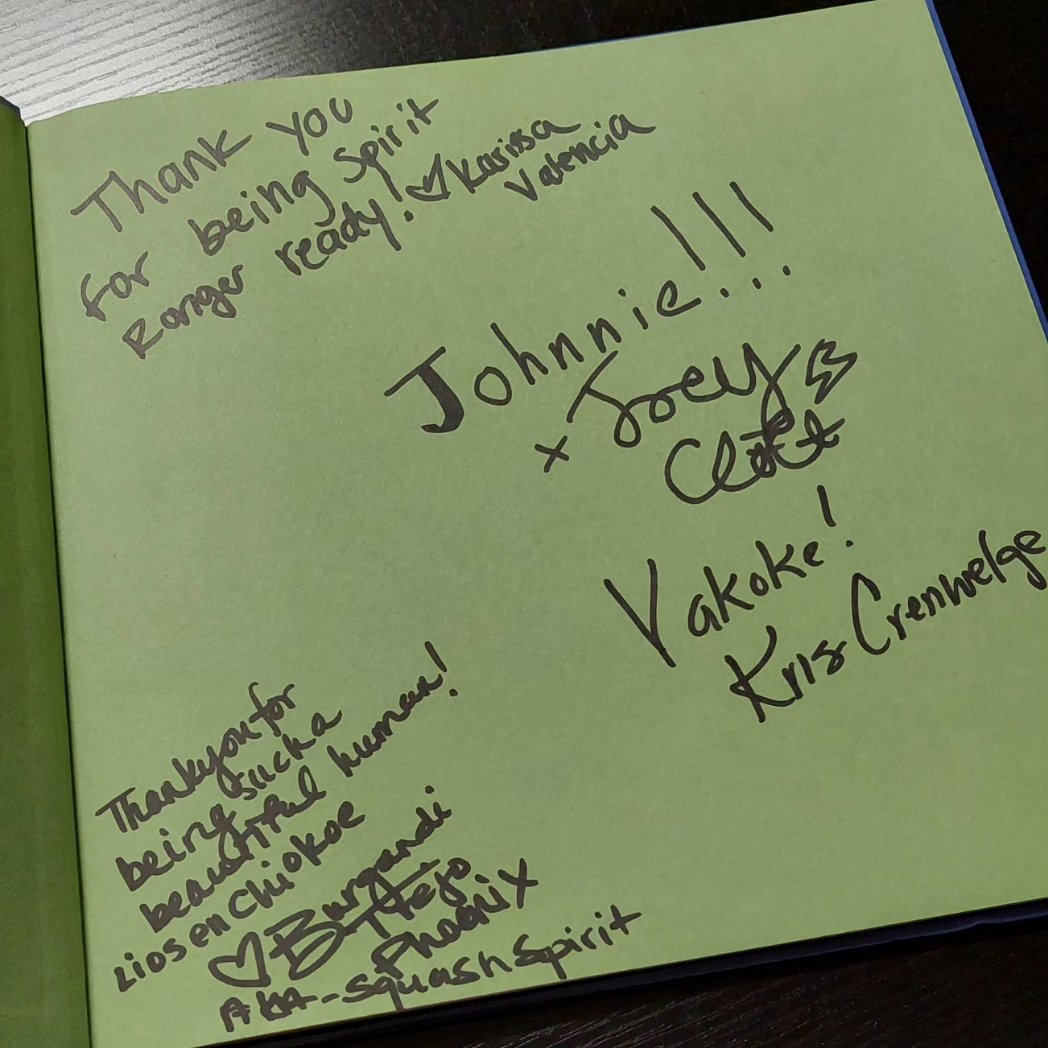 Thank you
for being Spirit
Ranger ready! Karissa
Valencia
Johnnie!!!
x Joey
Clift
Yakoke!
Kris Crenwelge
Thankyou for
being such a
beautiful human!
Liosenchiokoe
Burgandi
Trejo
Phoenix
AKA - Squash Spirit